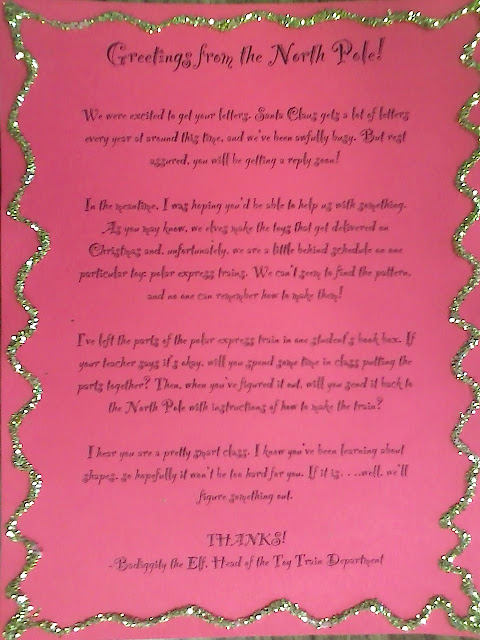 Greetings from the North Pole!
We were excited to get your letters. Santa Claus gets a lot of letters
every year at around this time, and we've been awfully busy. But rest
assured, you will be getting a reply soon!
In the meantime, I was hoping you'd be able to help us with something.
As you may know, we elves make the toys that get delivered on
Christmas and, unfortunately, we are a little behind schedule on one
particular toy: polar express trains. We can't seem to find the pattern,
and no one can remember how to make them!
I've left the parts of the polar express train in one student's book box. If
your teacher says it's okay, will you spend some time in class putting the
parts together? Then, when you've figured it out, will you send it back to
the North Pole with instructions of how to make the train?
I hear you are a pretty smart class. I know you've been learning about
shapes, so hopefully it won't be too hard for you. If it is. . . .well, we'll
figure something out.
THANKS!
-Badiggity the Elf, Head of the Toy Train Department